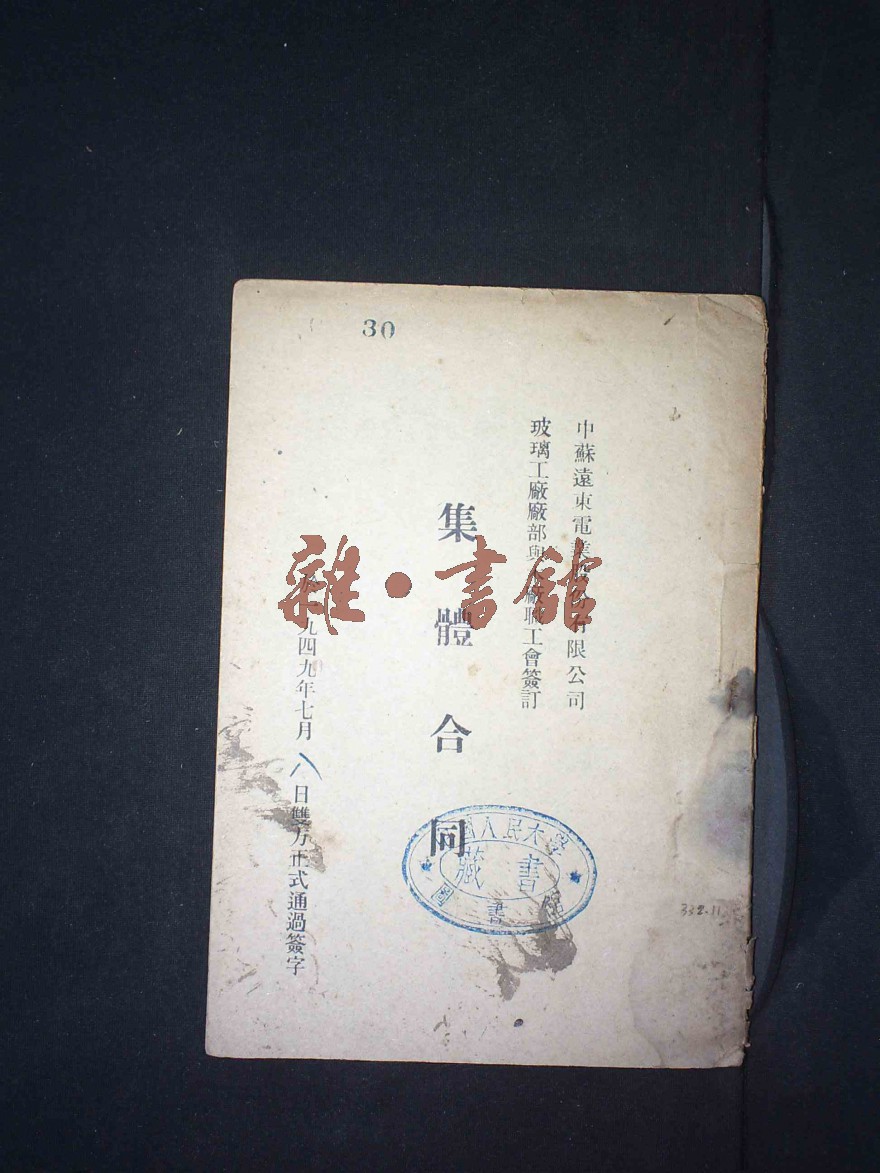 30
中蘇遠東電業股份有限公司
玻璃工廠廠部與本廠職工會簽訂
集體合同
九四九年七月八日雙方正式通過簽字
雜·書館
國人民大學
圖書館
藏書
332.11